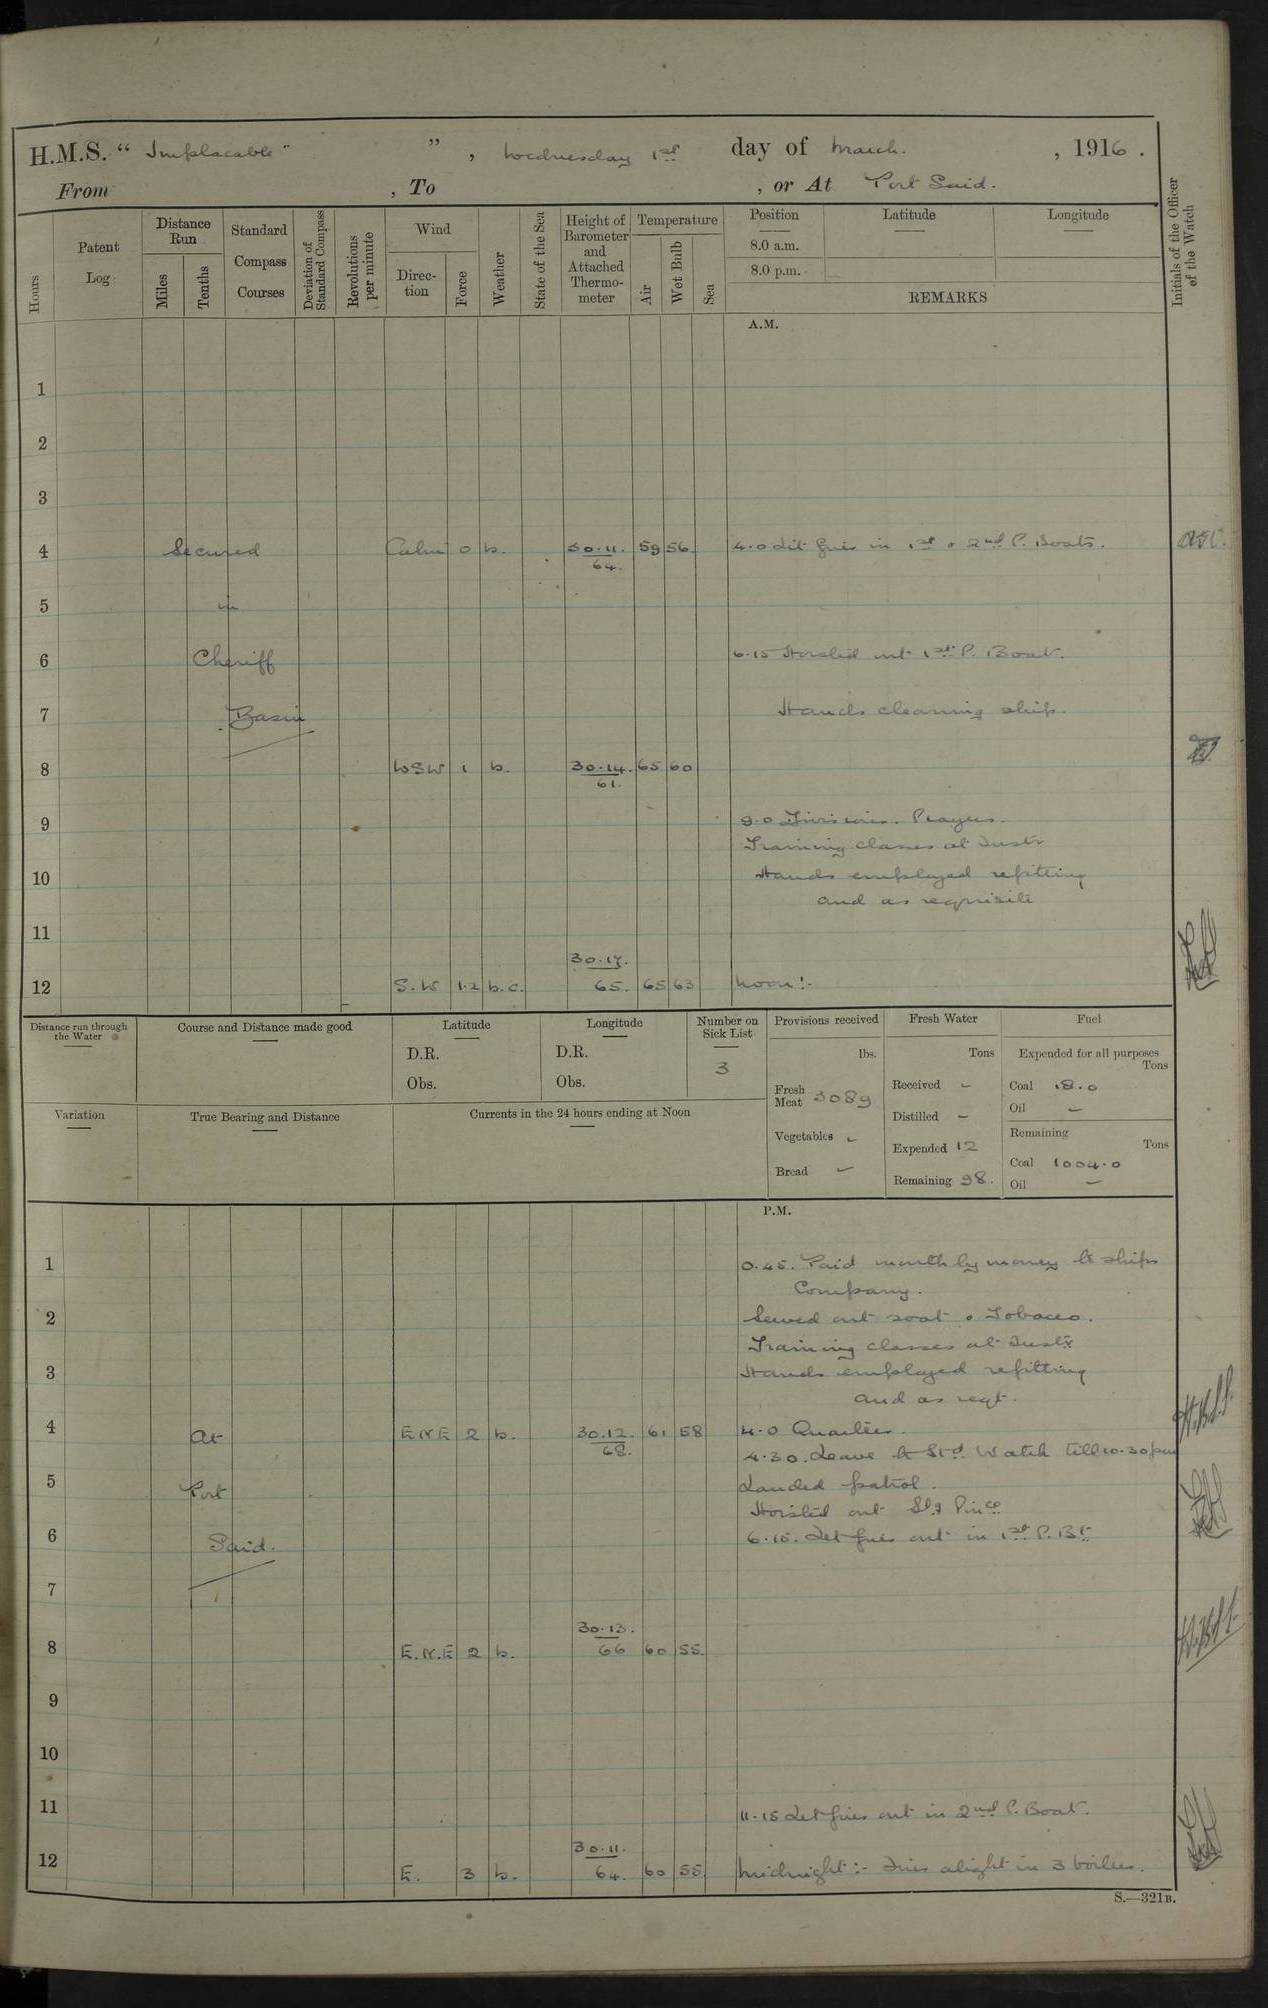 H.M.S. " Implacable " , Wednesday 1st day of March , 1916 .
From , To , or At Port Said.
Hours
Patent Log
Distance Run
Miles
Tenths
Standard Compass Courses
Deviation of Standard Compass
Revolutions per minute
Wind
Direction
Force
Weather
State of the Sea
Height of Barometer and Attached Thermometer
Temperature
Air
Wet Bulb
Sea
Position
8.0 a.m.
8.0 p.m.
Latitude
Longitude
REMARKS
Initials of the Officer of the Watch
A.M.
1
2
3
4 Secured Calm 0 b. 30.11. 64. 59 56 4.0 Lit fires in 1st & 2nd P. Boats.
5 in
6 Cheriff 6.15 Hoisted out 1st P. Boat.
7 Basin Hands cleaning ship.
8 WSW 1 b. 30.14. 61. 65 60
9 9.0 Divisions. Prayers.
Training classes at Instr
10 Hands employed refitting
and as requisite
11
12 S.W 1.2 b.c. 30.17. 65. 65 63 Noon:-
Distance run through the Water
Course and Distance made good
Latitude
D.R.
Obs.
Longitude
D.R.
Obs.
Number on Sick List
3
Provisions received
lbs.
Fresh Meat 3089
Vegetables -
Bread -
Fresh Water
Tons
Received -
Distilled -
Expended 12
Remaining 98.
Fuel
Expended for all purposes
Tons
Coal 18.0
Oil -
Remaining
Tons
Coal 1004.0
Oil -
Variation
True Bearing and Distance
Currents in the 24 hours ending at Noon
P.M.
1 0.45. Paid monthly money to ships
Company.
2 Served out soap & Tobacco.
Training classes at Instr
3 Hands employed refitting
and as reqt.
4 At E.N.E 2 b. 30.12. 68. 61 58 4.0 Quarters.
4.30. Leave to Std Watch till 10.30pm
5 Port Landed patrol.
Hoisted out Slg Pince
6 Said. 6.15. Let fires out in 1st P. Bt
7
8 E.N.E 2 b. 30.13. 66 60 55.
9
10
11 11.15 Let fires out in 2nd P. Boat.
12 E. 3 b. 30.11. 64. 60 55 Midnight:- Fires alight in 3 boilers.
S.—321B.